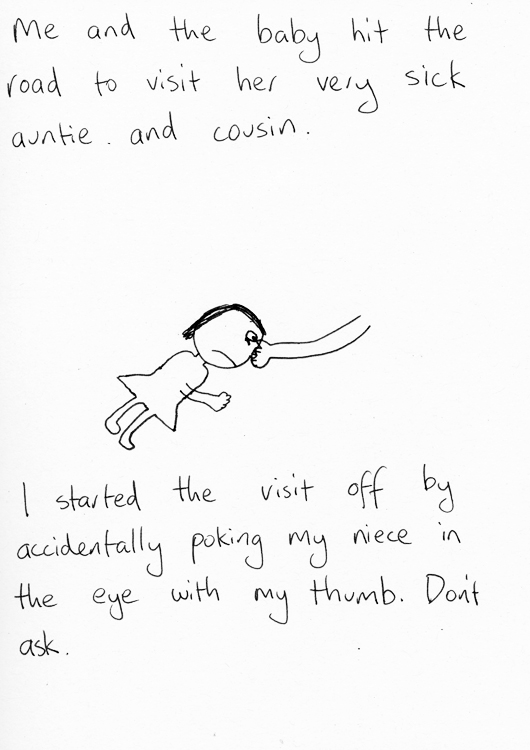 Me and the baby hit the
road to visit her very sick
auntie. and cousin.
I started the visit off by
accidentally poking my niece in
the eye with my thumb. Don't
ask.